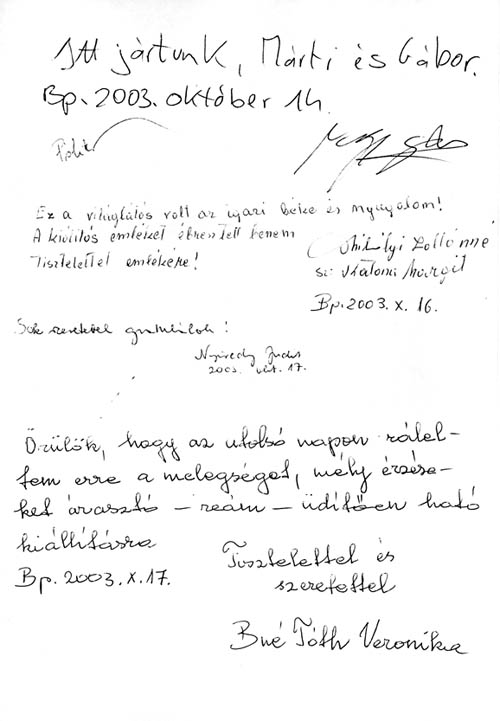 Itt jártunk, Márti és Gábor.
Bp. 2003. október 14.
Ez a világlátás volt az igazi béke és nyugalom!
A kiállítás emléket ébresztett bennem
Tisztelettel emlékére!
Zoltánné
Katona Margit
Bp. 2003. X. 16.
Sok szeretettel gratulálok!
Judit
2003. okt. 17.
Örülök, hogy az utolsó napon rátalál-
tam erre a melegséget, mély érzése-
ket árasztó – reám – üdítően ható
kiállításra
Bp. 2003. X. 17.
Tisztelettel és
szeretettel
Bné Tóth Veronika